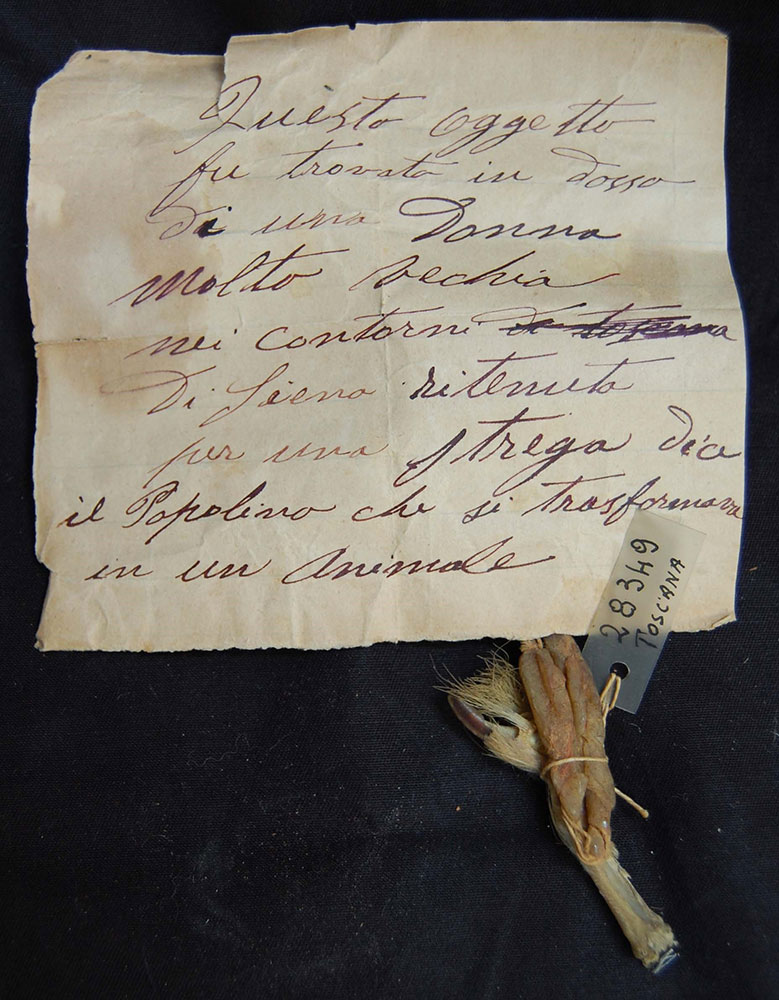 Questo oggetto
fu trovato in dosso
di una Donna
Molto Vechia
nei contorni di toscana
Di Siena ritenuta
per una strega dice
il Popolino che si trasformava
in un Animale
28349
TOSCANA